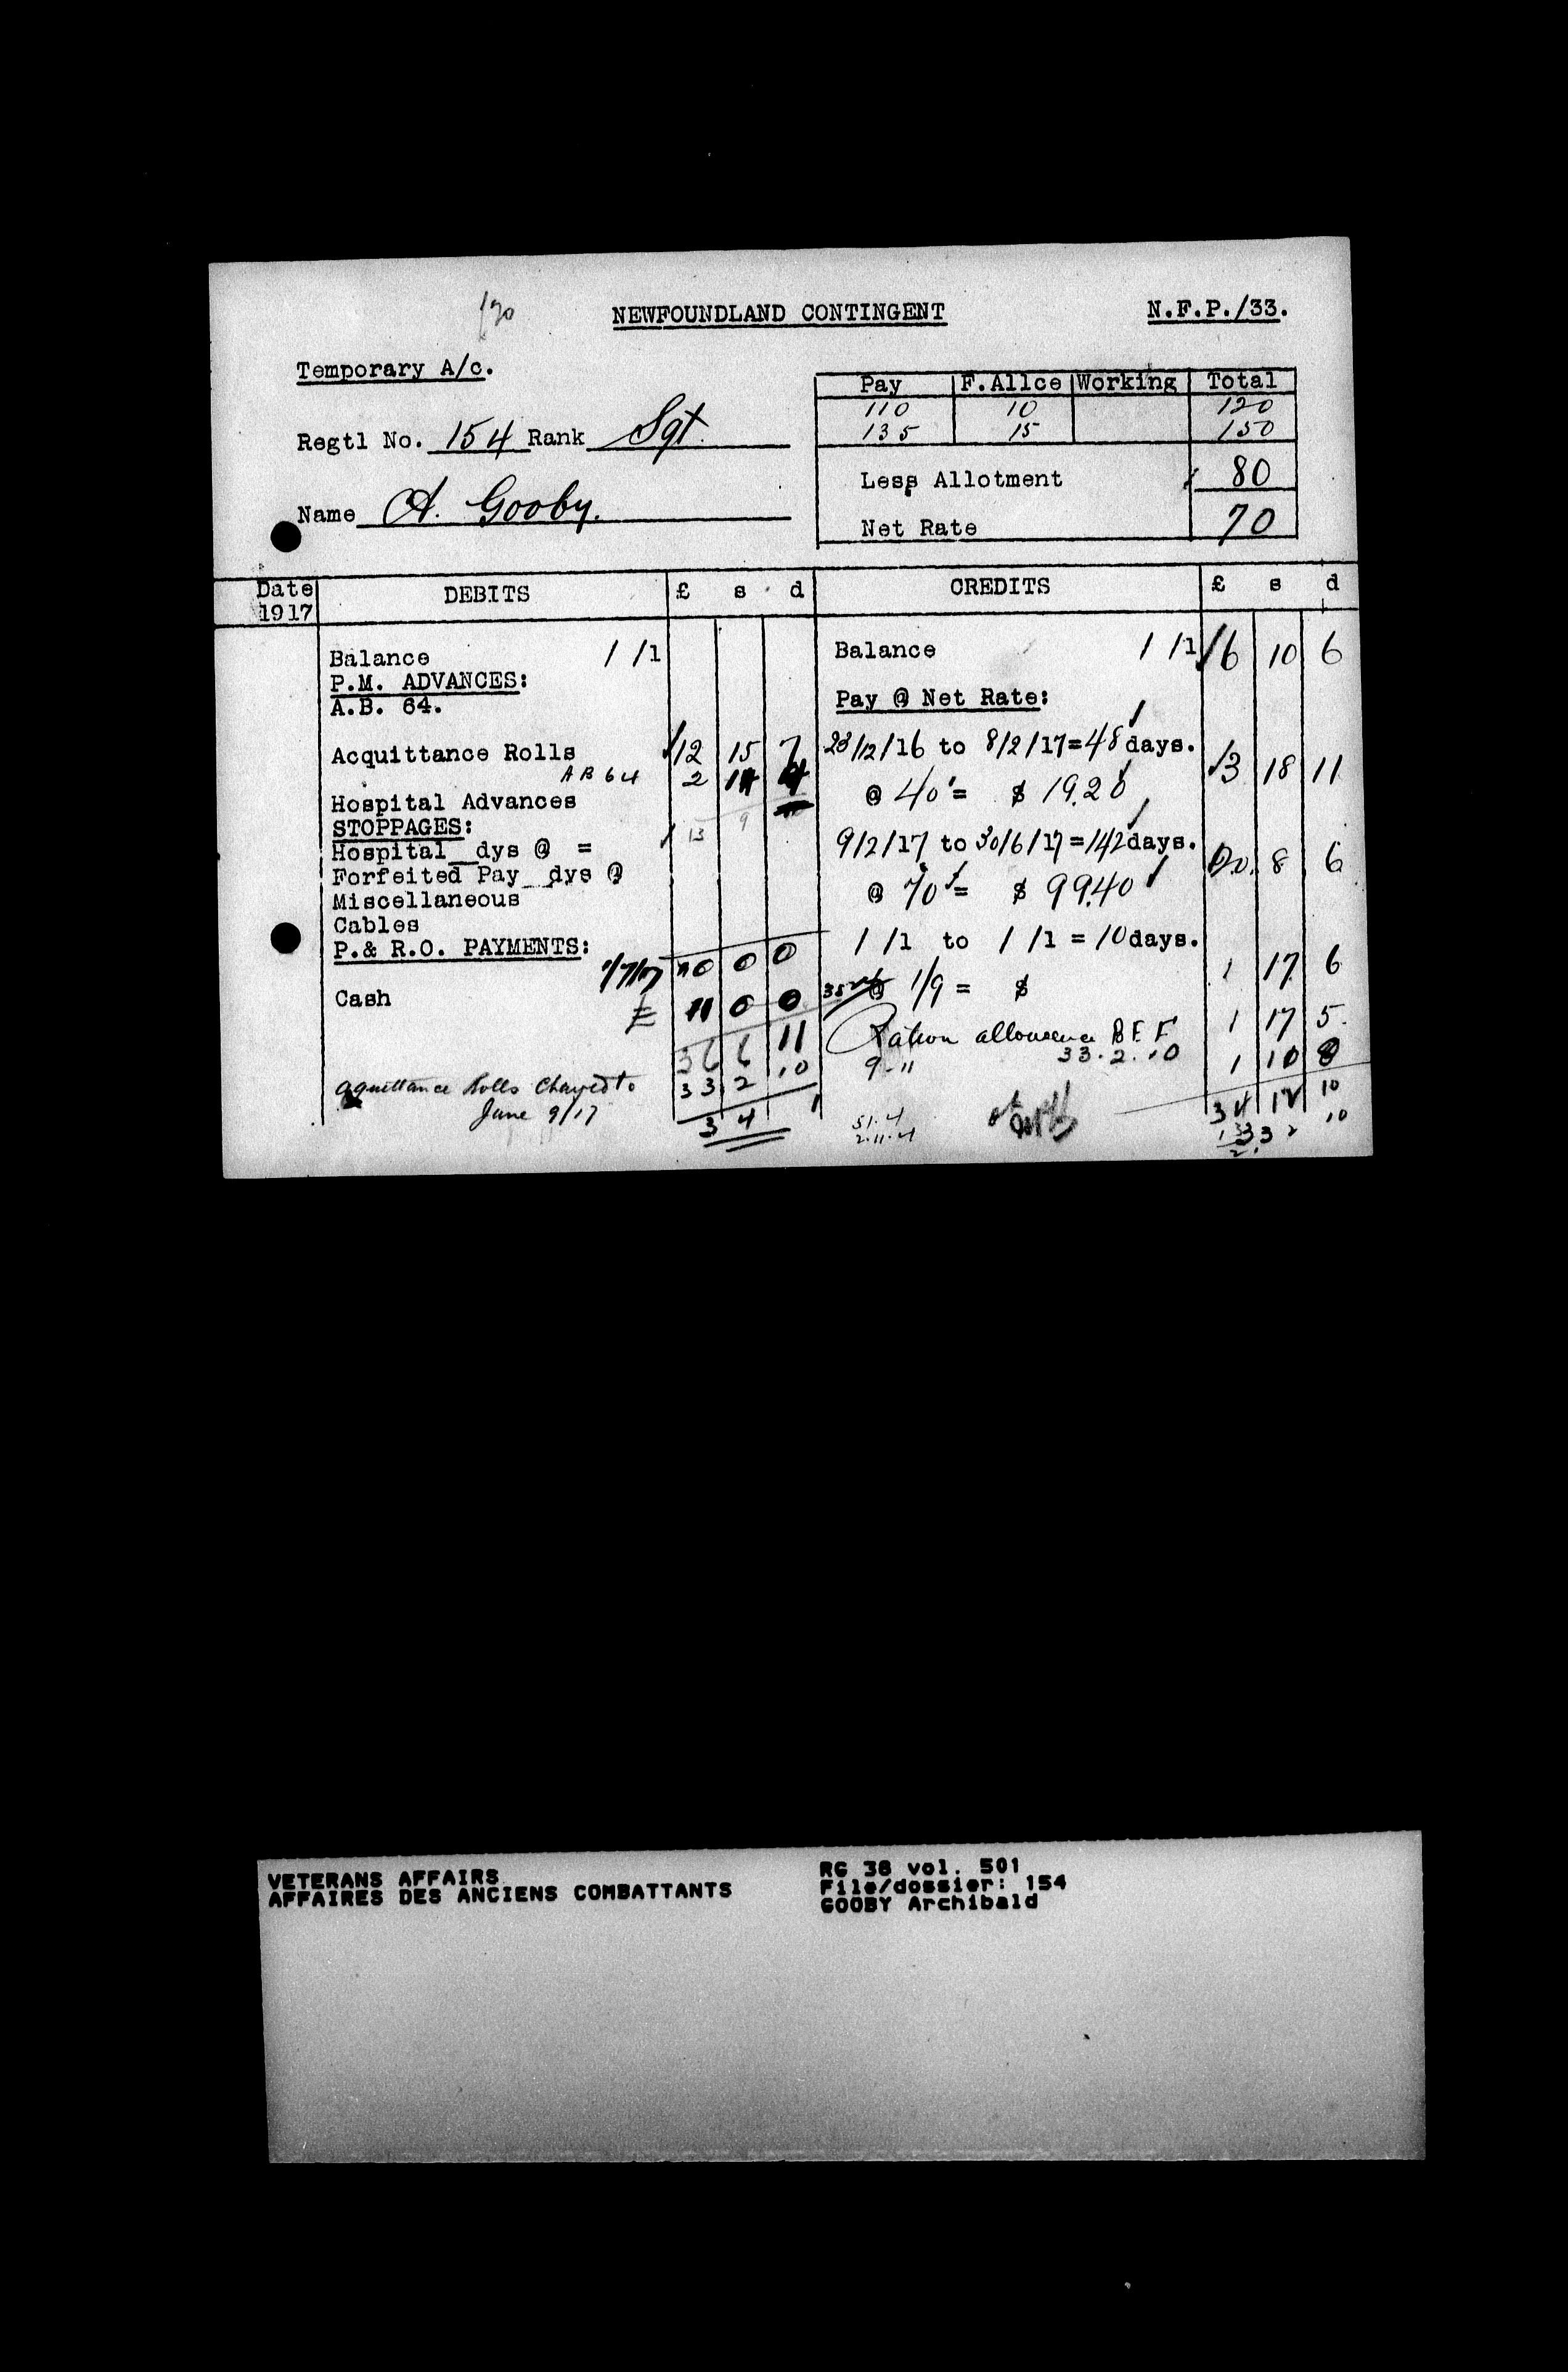 NEWFOUNDLAND CONTINGENT
N.F.P./33.
Temporary A/c.
Regtl No. 154 Rank Sgt.
Name A. Gooby.
Pay F.Allce Working Total
110 10 120
135 15 150
Less Allotment 80
Net Rate 70
Date 1917 DEBITS £ s d CREDITS £ s d
Balance / /1
P.M. ADVANCES:
A.B. 64.
Acquittance Rolls 12 15 7
A B 64 2 14 4
Hospital Advances
STOPPAGES: 13 9
Hospital dys @ =
Forfeited Pay dys @
Miscellaneous
Cables
P.& R.O. PAYMENTS:
10 0 0
Cash £ 11 0 0
36 6 11
Aquittance Rolls Charged to 33 2 10
June 9/17
3 4 1
Balance / /1 6 10 6
Pay @ Net Rate:
23/12/16 to 8/2/17=48days.
@ 40 = $ 19.20 3 18 11
9/2/17 to 30/6/17=142days.
@ 70 = $ 99.40 20. 8 6
/ /1 to / /1 = 10days.
@ 1/9 = $ 1 17 6
Ration allowance B E F 1 17 5.
9 " 33.2.10 1 10 8
51.4
2.11.4
34 12 10
33 2 10
VETERANS AFFAIRS
AFFAIRES DES ANCIENS COMBATTANTS
RG 38 vol. 501
File/dossier: 154
GOOBY Archibald